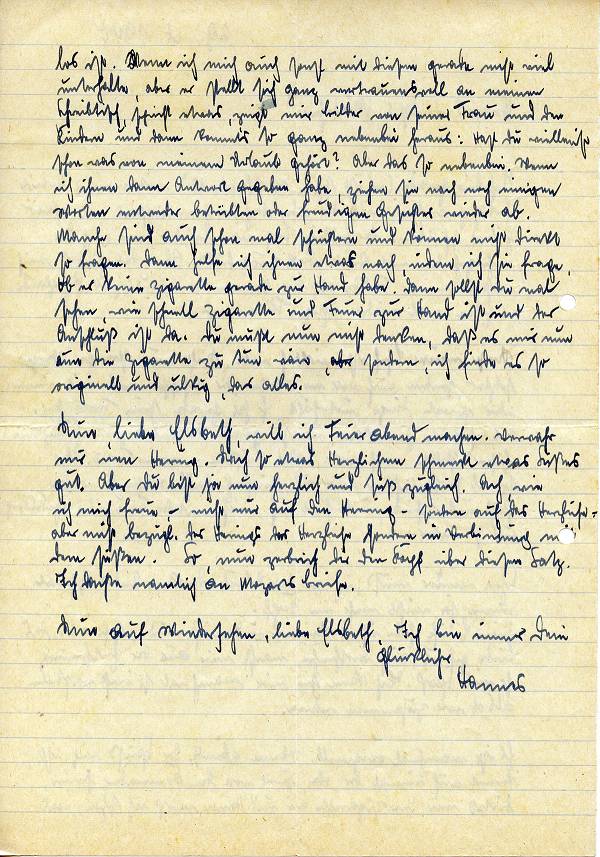 los ist. Wenn ich mich auch sonst mit diesen gerade nicht viel
unterhalte, aber er stellt sich ganz vertrauensvoll an meinen
Schreibtisch, spricht etwas, zeigt mir Bilder von seiner Frau und den
Kindern und dann kommts so ganz nebenbei heraus: Hast du vielleicht
schon was von meinem Urlaub gehört? Aber das so nebenbei. Wenn
ich ihnen dann Antwort gegeben habe, ziehen sie nach noch einigen
Worten entweder betrübten oder freudigen Gesichtes wieder ab.
Manche sind auch schon mal schüchtern und können nicht direkt
so fragen. Dann helfe ich ihnen etwas nach, indem ich sie frage,
ob er keine Zigarette gerade zur Hand habe. Dann sollst du mal
sehen, wie schnell Zigarette und Feuer zur Hand ist und der
Anschluß ist da. Du mußt nun nicht denken, daß es mir nun
um die Zigarette zu tun wäre, aber sondern, ich finde es so
originell und ulkig, das alles.
Nun, liebe Elsbeth, will ich Feierabend machen. Verwahr
mir nen Hering. Nach so etwas Herzlichen schmeckt etwas Süßes
gut. Aber Du bist ja nun herzlich und süß zugleich. Ach, wie
ich mich freue – nicht nur auf den Hering – sondern auf das Herzliche –
aber nicht bezügl. des Herings das Herzliche sondern in Verbindung mit
dem Süßen. So, nun zerbrich dir den Kopf über diesen Satz.
Ich dachte nämlich an Mozarts Briefe.
Nun auf Wiedersehen, liebe Elsbeth, Ich bin immer Dein
glücklicher
Hannes